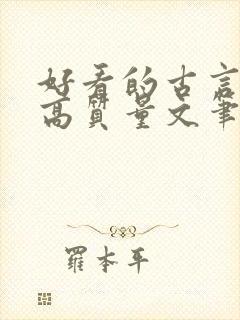 好看的古言
高质量文笔
羅本平